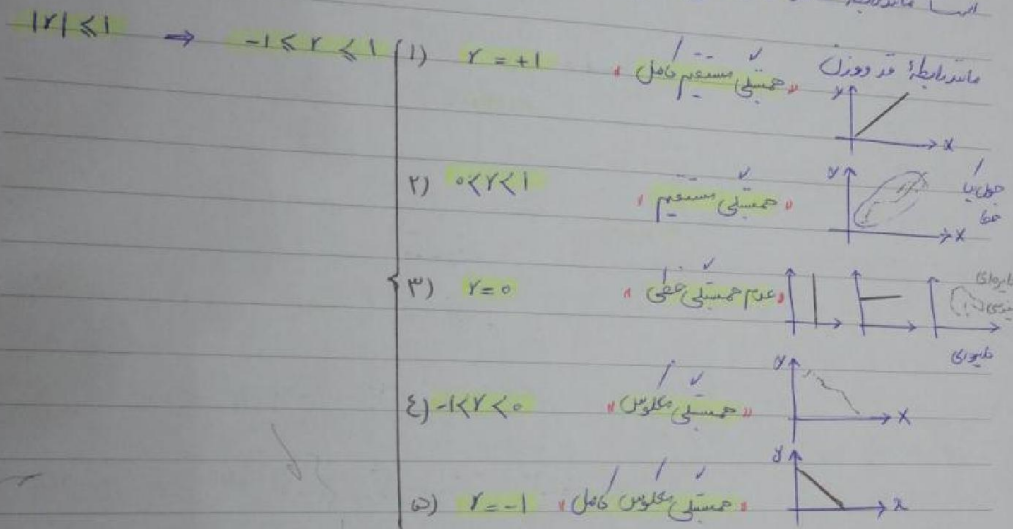 |r| ≤ 1 ⇒ -1 ≤ r ≤ 1
۱) r = +1 «همبستگی مستقیم کامل» مانند رابطهٔ قد و وزن
y
x
۲) 0 < r < 1 «همبستگی مستقیم»
y
x
۳) r = 0 «عدم همبستگی خطی»
٤) -1 < r < 0 «همبستگی معکوس»
y
x
۵) r = -1 «همبستگی معکوس کامل»
y
x